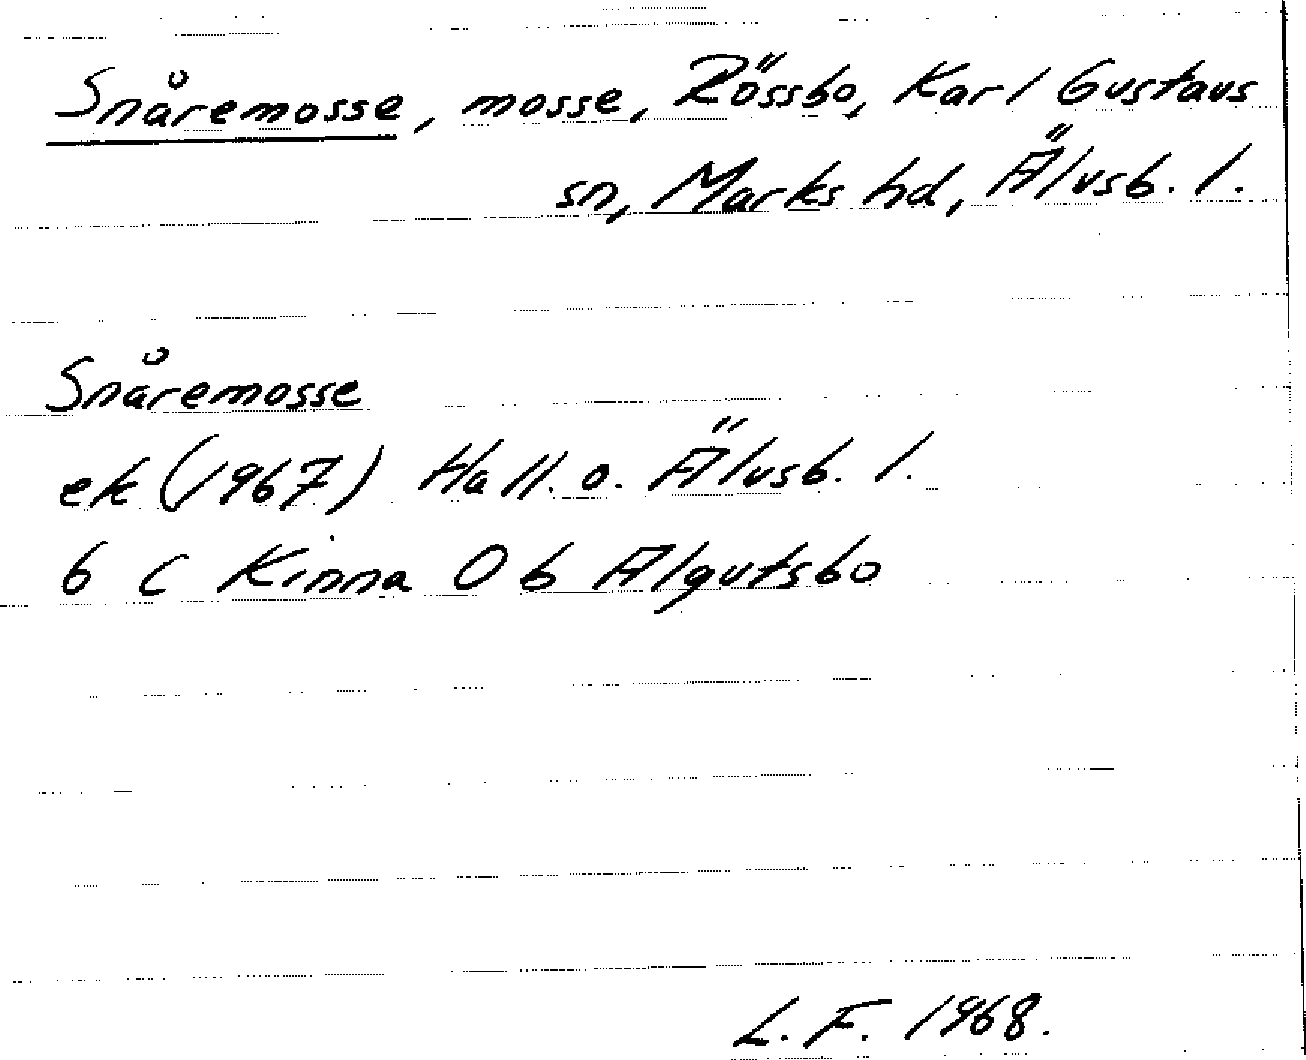 Snåremosse, mosse, Rössbo, Karl Gustavs
sn, Marks hd, Älvsb. l.
Snåremosse
ek (1967) Hall. o. Älvsb. l.
6 C Kinna 0 b Algutsbo
L. F. 1968.